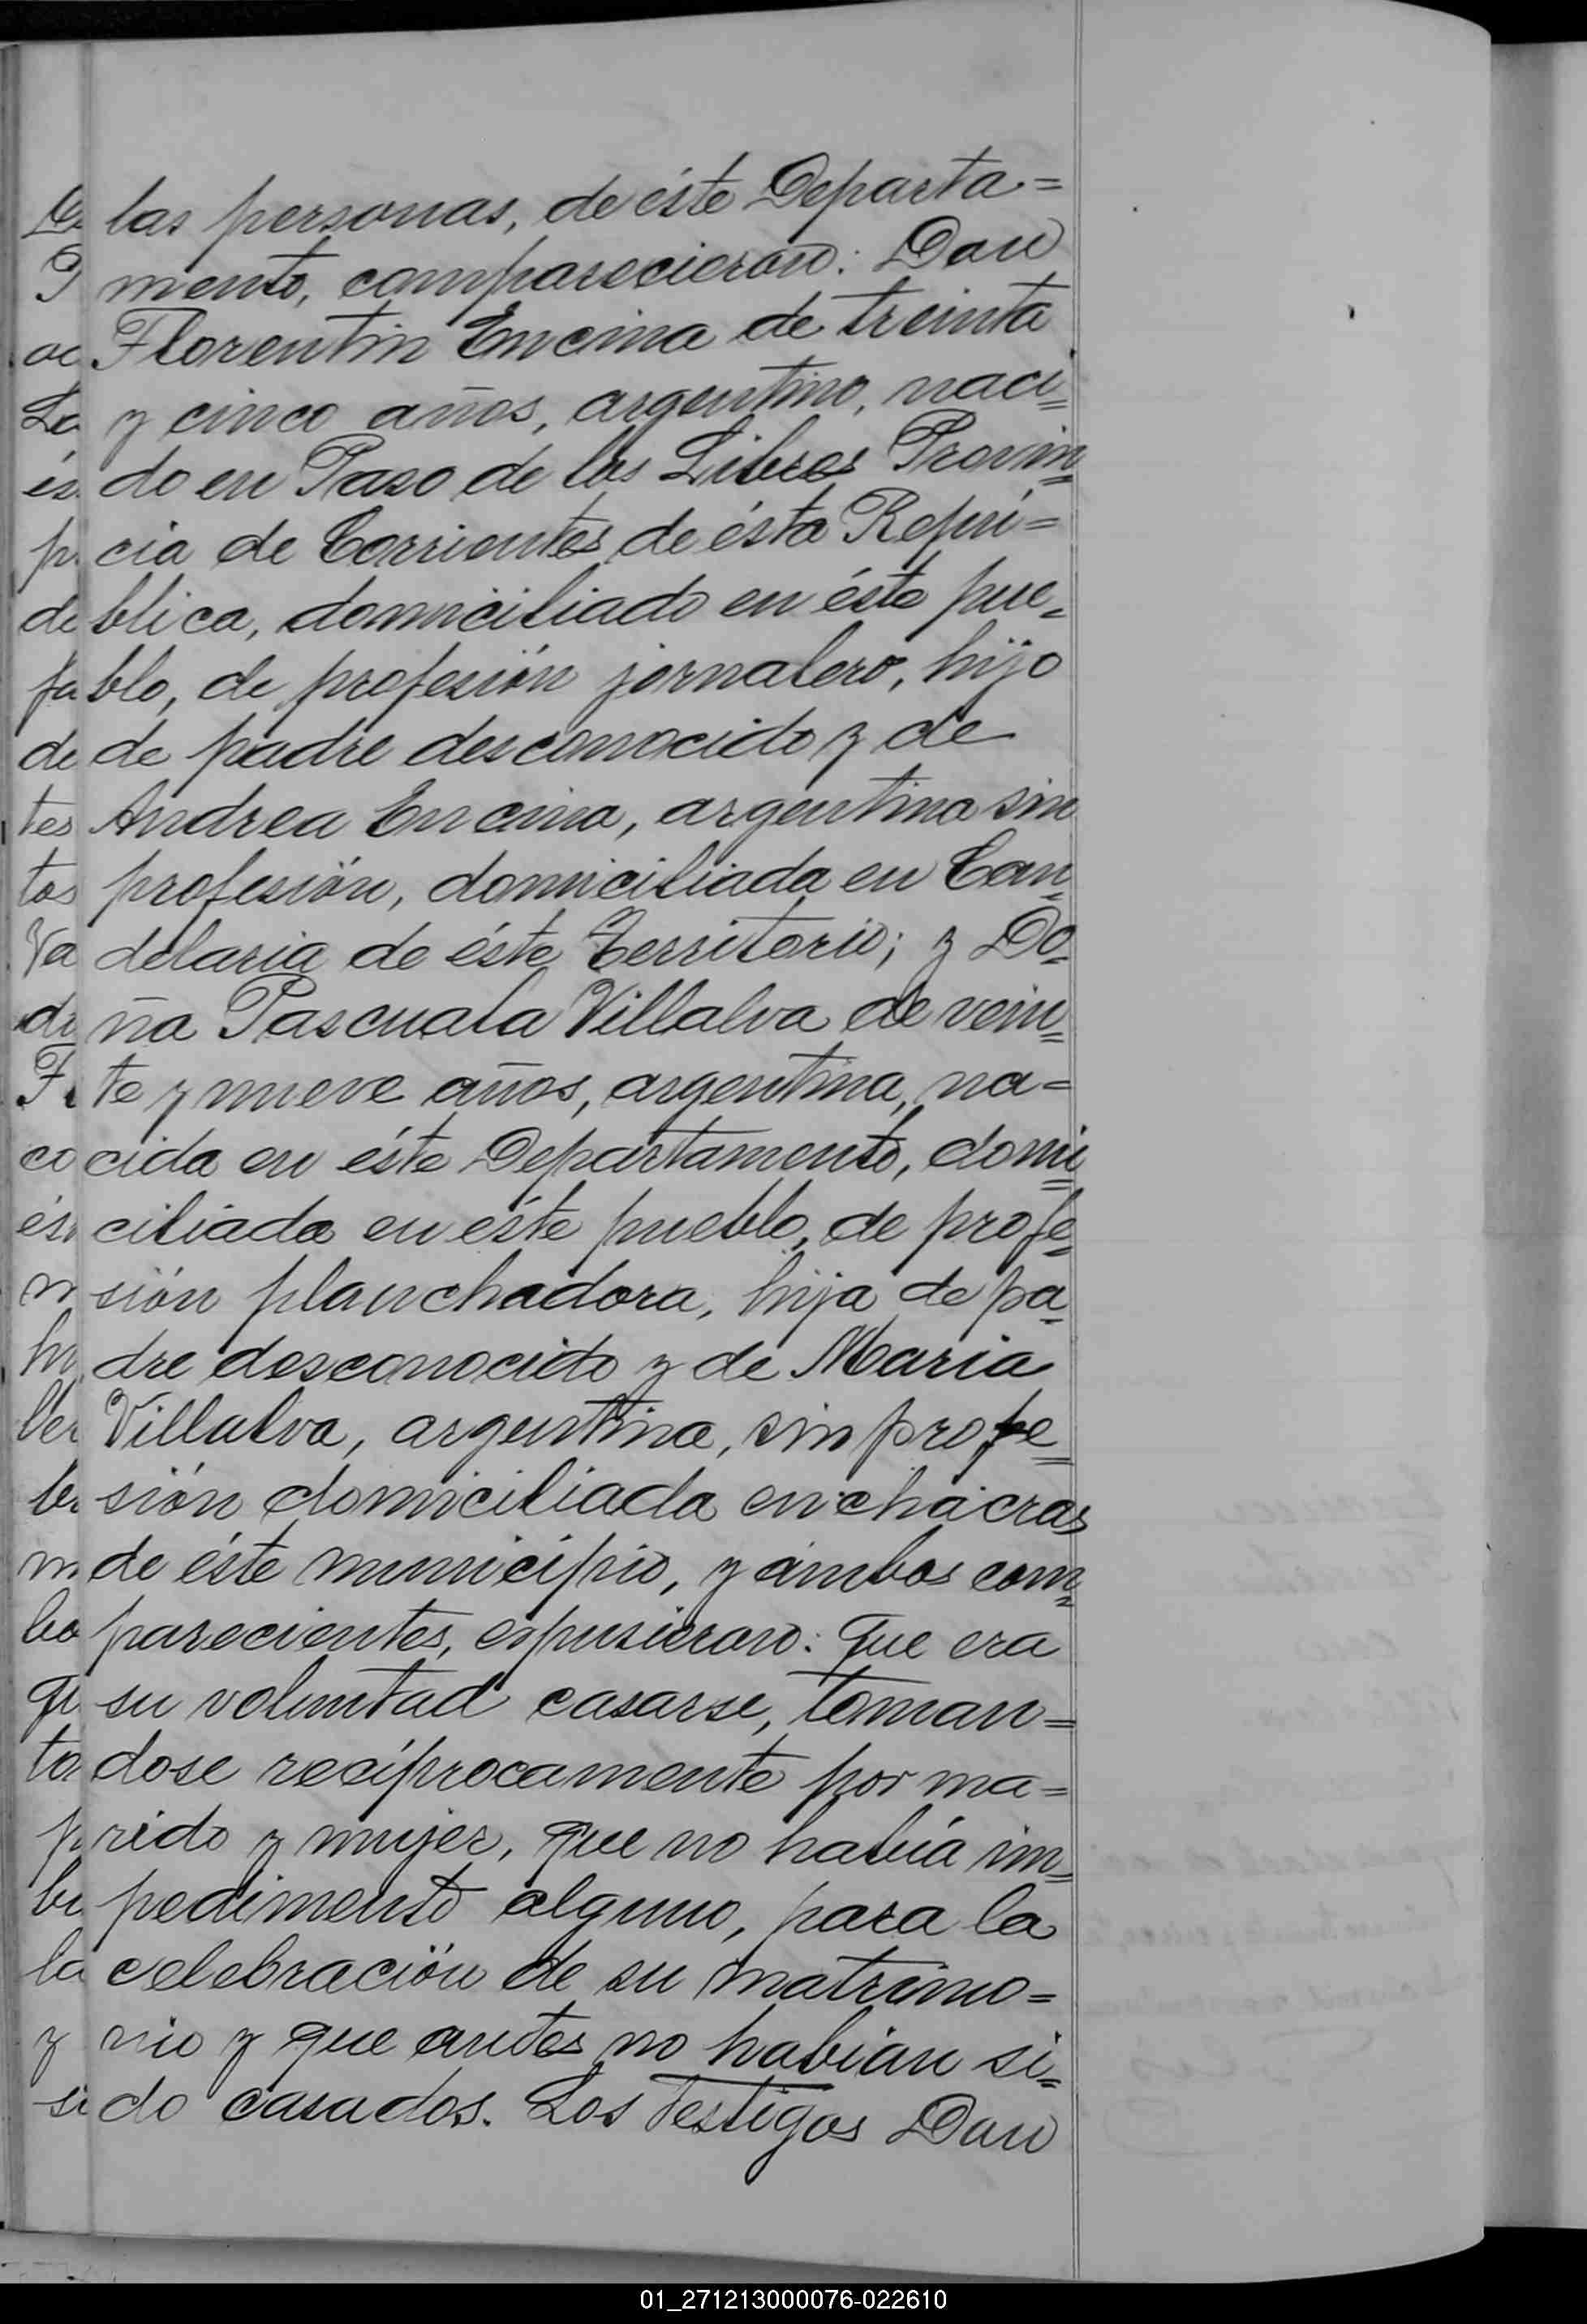 las personas, de éste Departa=
mento, comparecieron: Don
Florentin Encina de treinta
y cinco años, argentino, naci=
do en Paso de los Libres Provin=
cia de Corrientes de ésta Repú=
blica, domiciliado en éste pue=
blo, de profesión jornalero, hijo
de padre desconocido y de
Andrea Encina, argentina sin
profesión, domiciliada en Can=
delaria de éste Territorio; y Do=
ña Pascuala Villalva de vein=
te y nueve años, argentina, na=
cida en éste Departamento, domi=
ciliada en éste pueblo, de profe=
sión planchadora, hija de pa=
dre desconocido y de Maria
Villalva, argentina, sin profe=
sión domiciliada en chacras
de éste municipio, y ámbos com=
parecientes, espusieron: que era
su voluntad casarse, toman=
dose recíprocamente por ma=
rido y mujer, que no había im=
pedimento alguno, para la
celebración de su matrimo=
nio y que antes no habian si=
do casados. Los Testigos Don
01_271213000076-022610